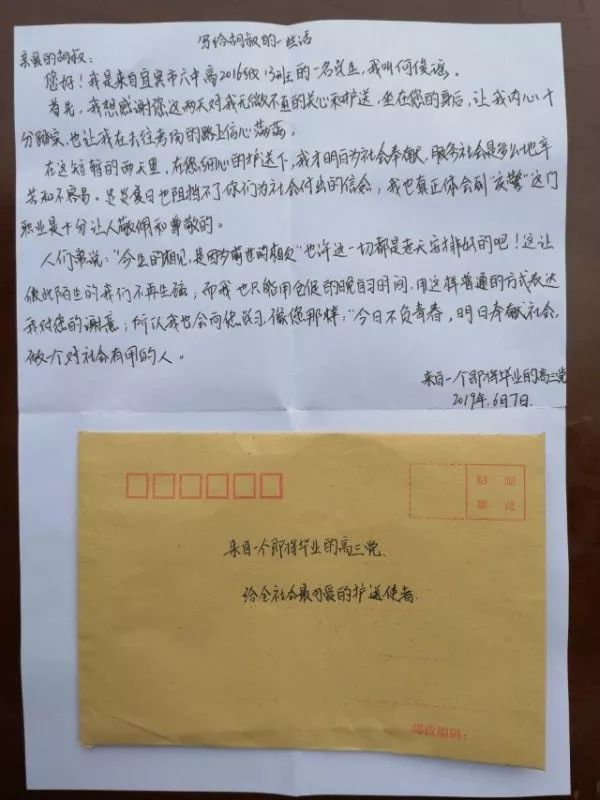 写给胡叔的一些话
亲爱的胡叔：
您好！我是来自宜宾市六中高2016级13班的一名学生，我叫何俊谣。
首先，我想感谢您这两天对我无微不至的关心和护送，坐在您的身后，让我内心十
分踏实，也让我在去往考场的路上信心荡荡。
在这短暂的两天里，在您细心的护送下，我才明白为社会奉献，服务社会是多么地辛
苦和不容易。炎炎夏日也阻挡不了你们为社会付出的信念，我也真正体会到"交警"这门
职业是十分让人敬佩和尊敬的。
人们常说："今生的相见，是因为前世的相欠"也许这一切都是老天安排好的吧！这让
彼此陌生的我们不再生疏；而我也只能用仓促的晚自习时间，用这样普通的方式表达
我对您的谢意；所以我也会向您学习，像您那样："今日不负青春，明日奉献社会，
做个对社会有用的人。
来自一个即将毕业的高三党
2019年6月7日.
贴 邮
票 处
来自一个即将毕业的高三党
给全社会最可爱的护送使者.
邮政编码：